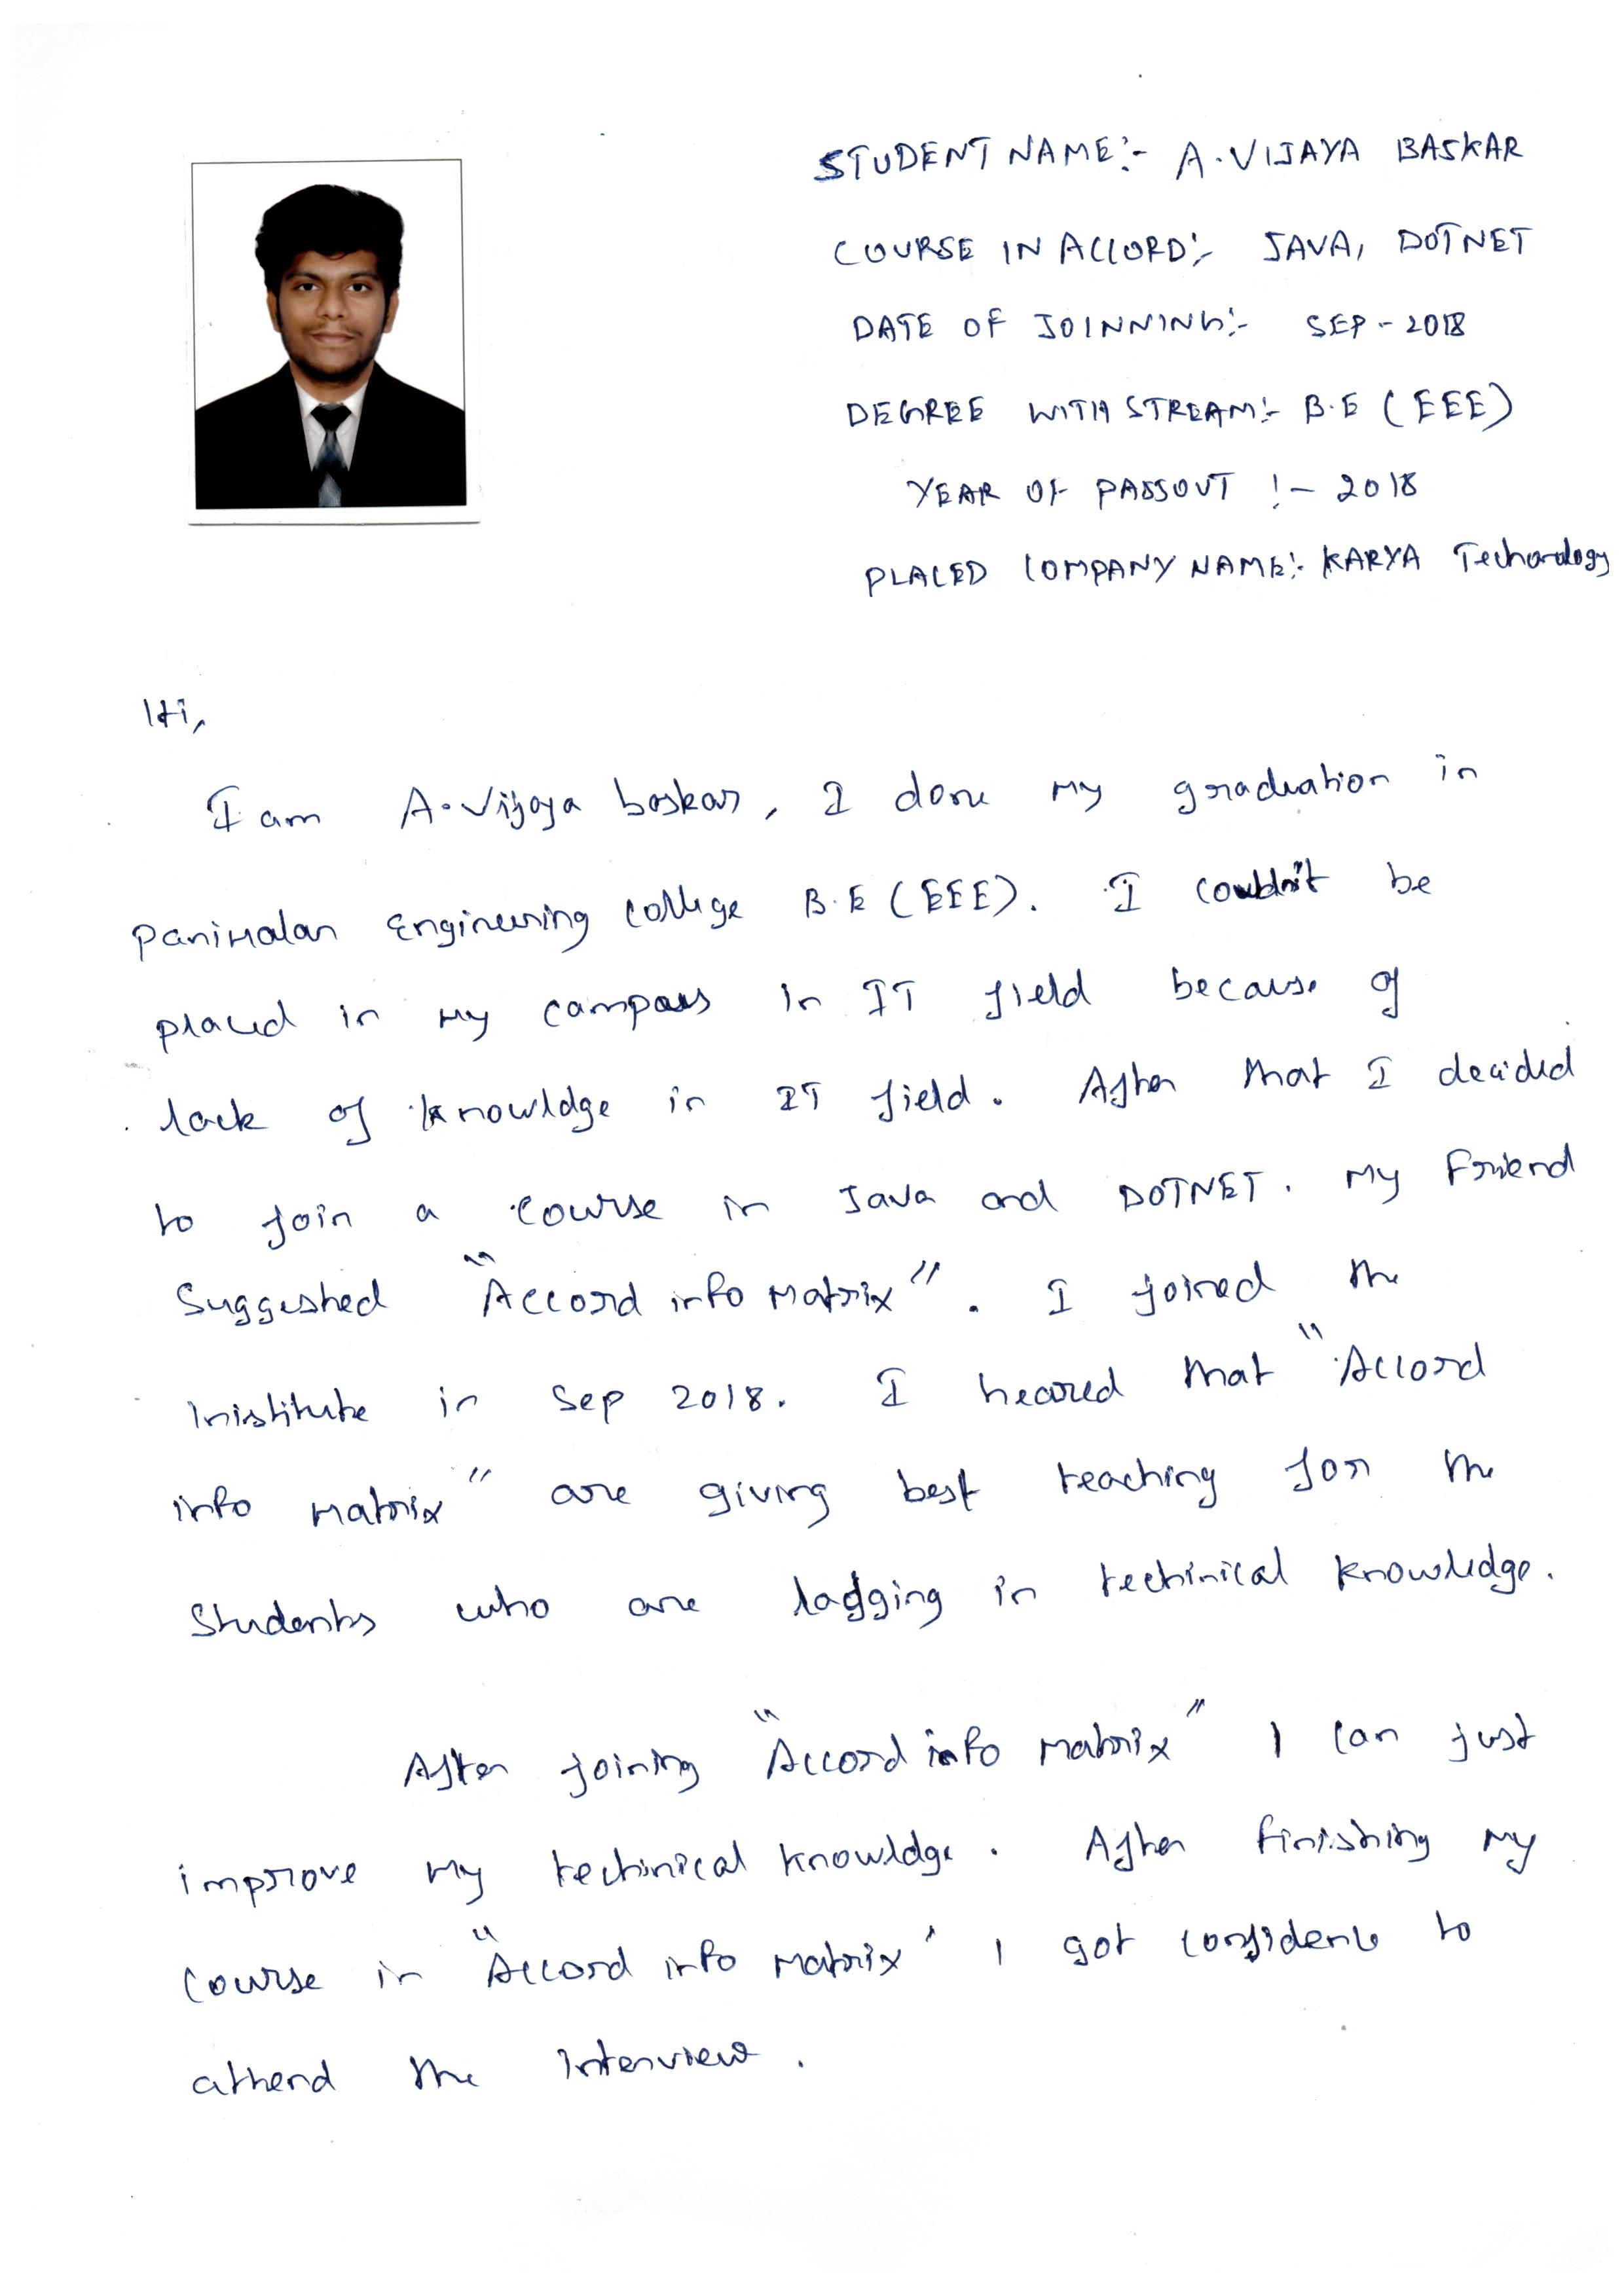 STUDENT NAME:- A.VIJAYA BASKAR
COURSE IN ACCORD:- JAVA, DOTNET
DATE OF JOINNING:- SEP-2018
DEGREE WITH STREAM:- B.E (EEE)
YEAR OF PASSOUT :- 2018
PLACED COMPANY NAME:- KARYA Technology
Hi,
I am A.Vijaya baskar, I done my graduation in
panimalar Engineering college B.E (EEE). I couldn't be
placed in my campus in IT field because of
lack of knowldge in IT field. After that I decided
to join a course in Java and DOTNET. My Friend
Suggested "Accord info matrix". I joined the
Inistitute in Sep 2018. I heared that "Accord
info matrix" are giving best teaching for the
Students who are lagging in techinical knowledge.
After joining "Accord info matrix" I can just
improve my techinical knowldge. After finishing my
course in "Accord info matrix' I got confidence to
attend the Interview.